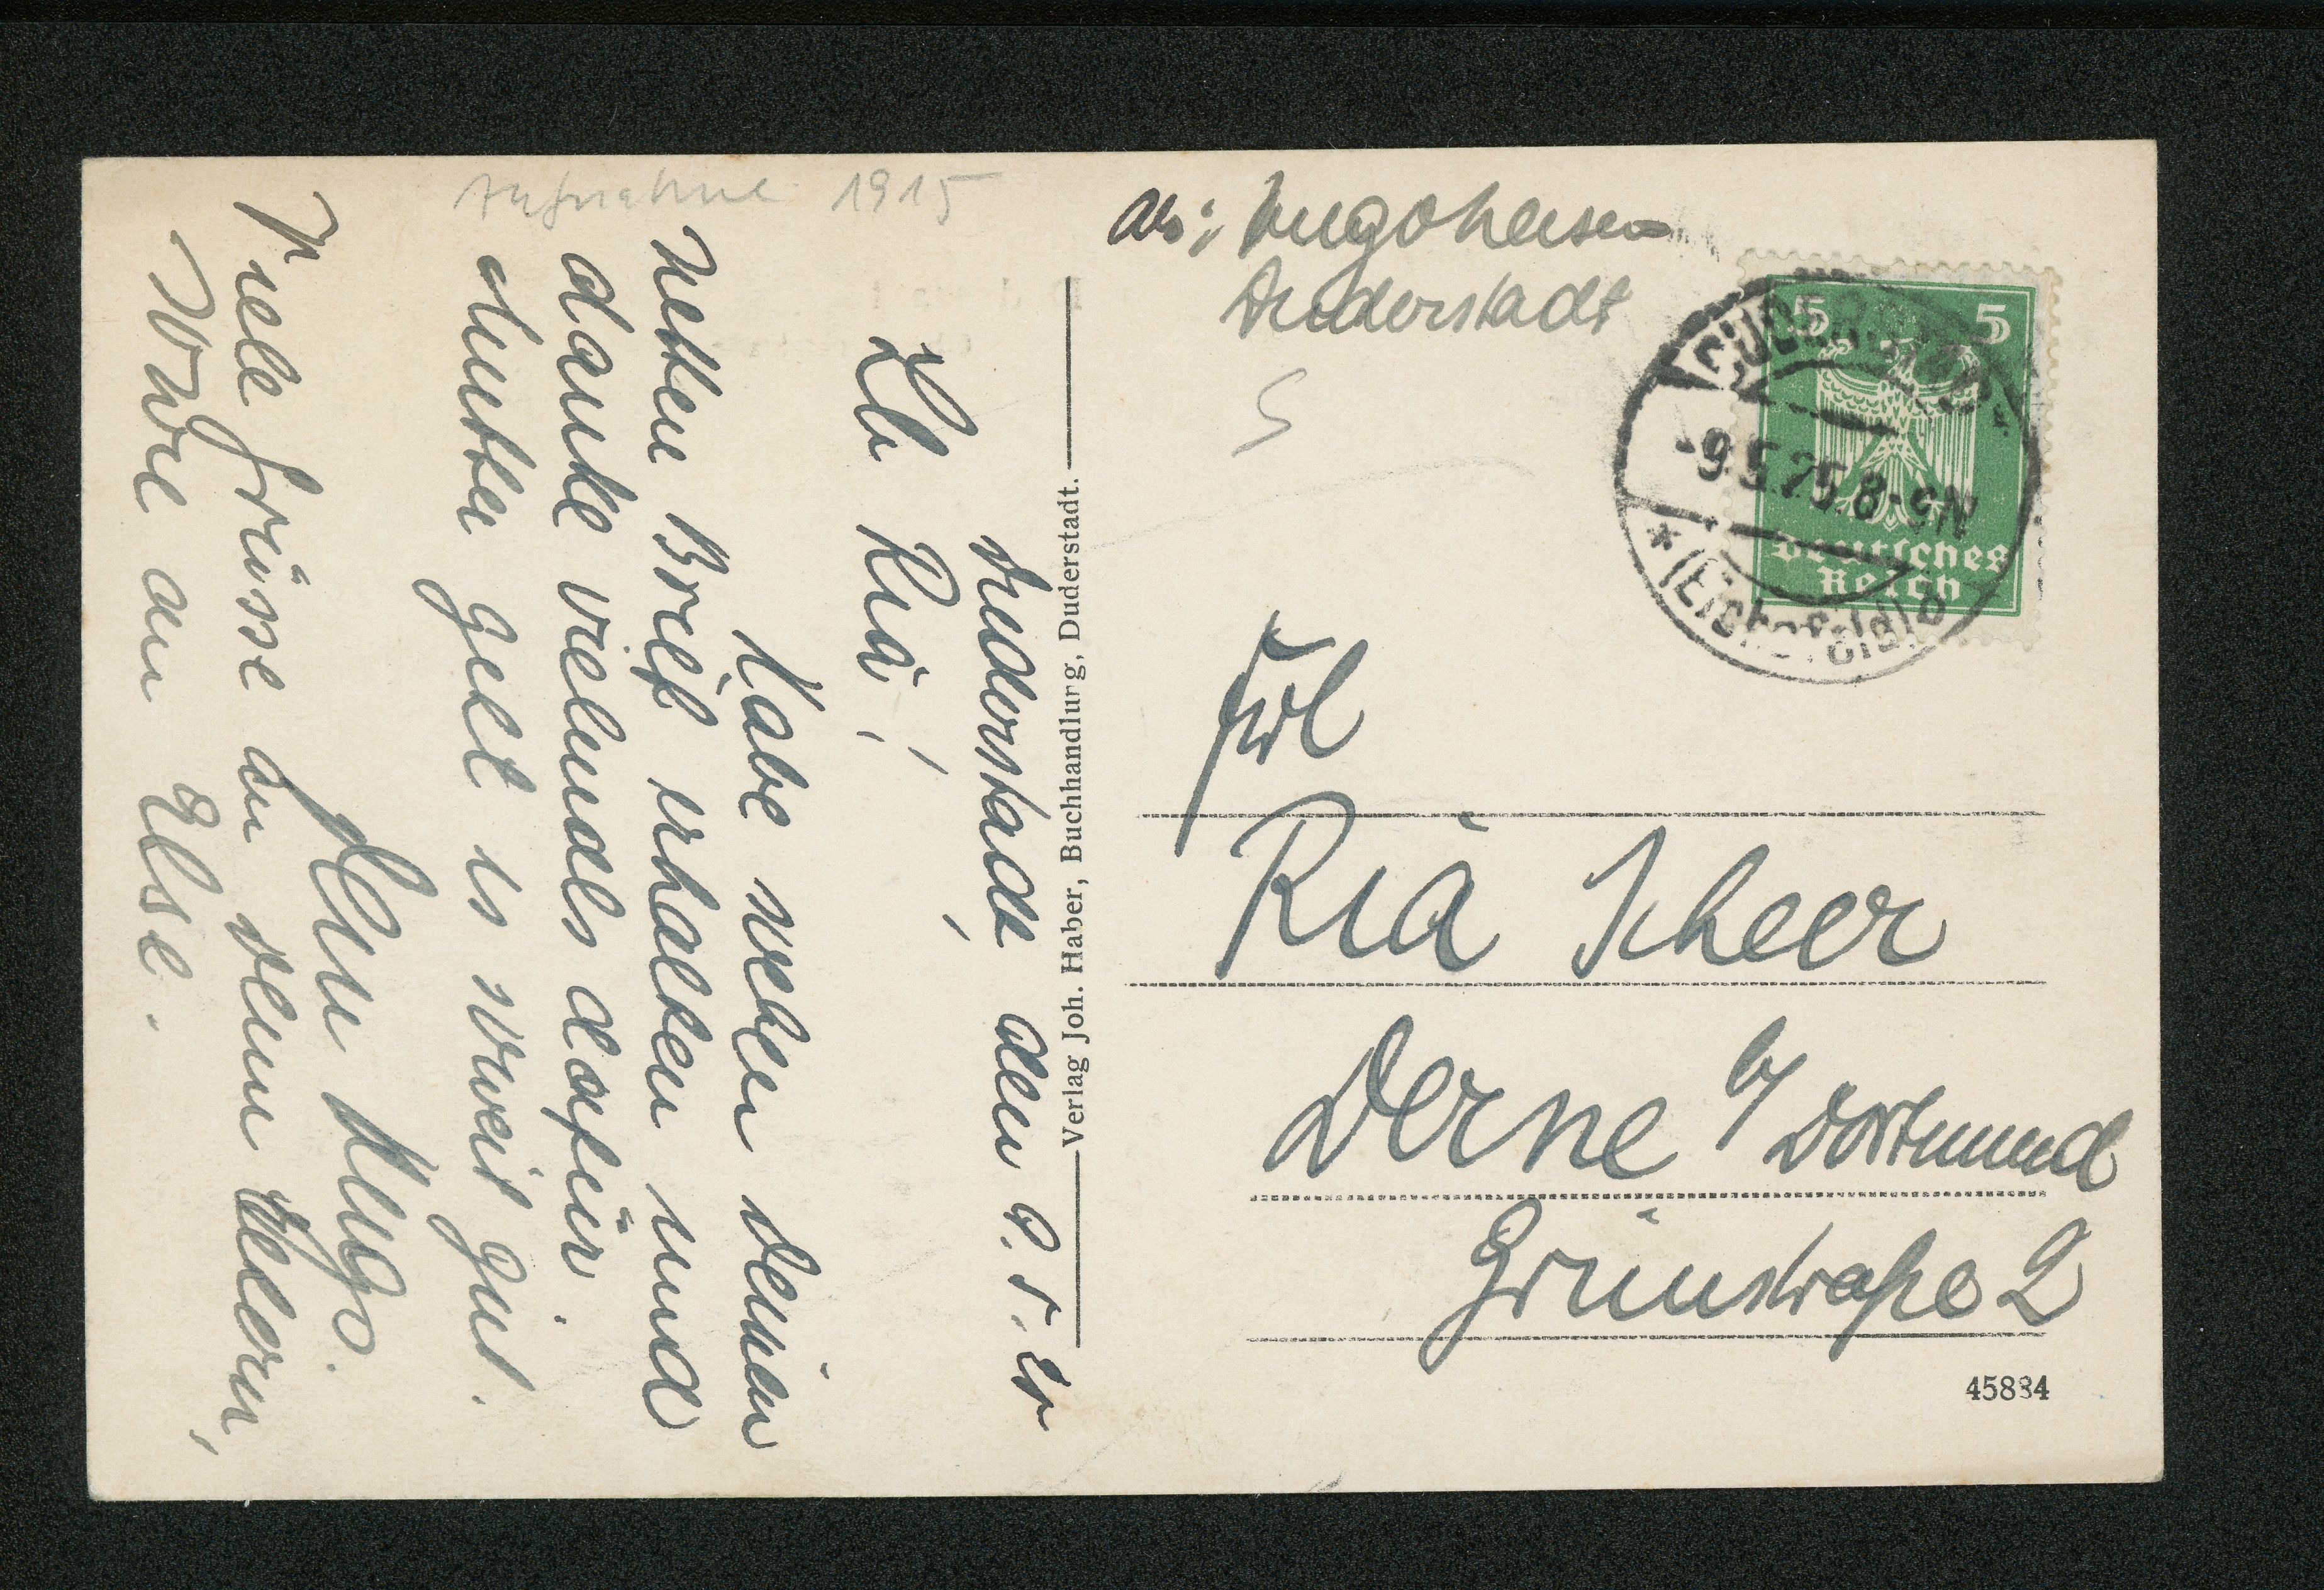 Aufnahme 1915
Duderstadt, den 9. 5. 25
Lb Ria!
Habe neben deinen
netten Brief erhalten und
danke vielmals dafür.
Mutter geht es soweit gut.
Dein Hugo.
Viele Grüsse an deine Eltern,
Wwe an Else.
Verlag Joh. Haber, Buchhandlung, Duderstadt.
Ab: Hugo
Duderstadt
5 5
Deutsches
Reich
DUDERSTADT
-9.5.25.8-9N
* (Eichsfeld) b
Frl
Ria Scheer
Derne b/ Dortmund
Grünstraße 2
45884